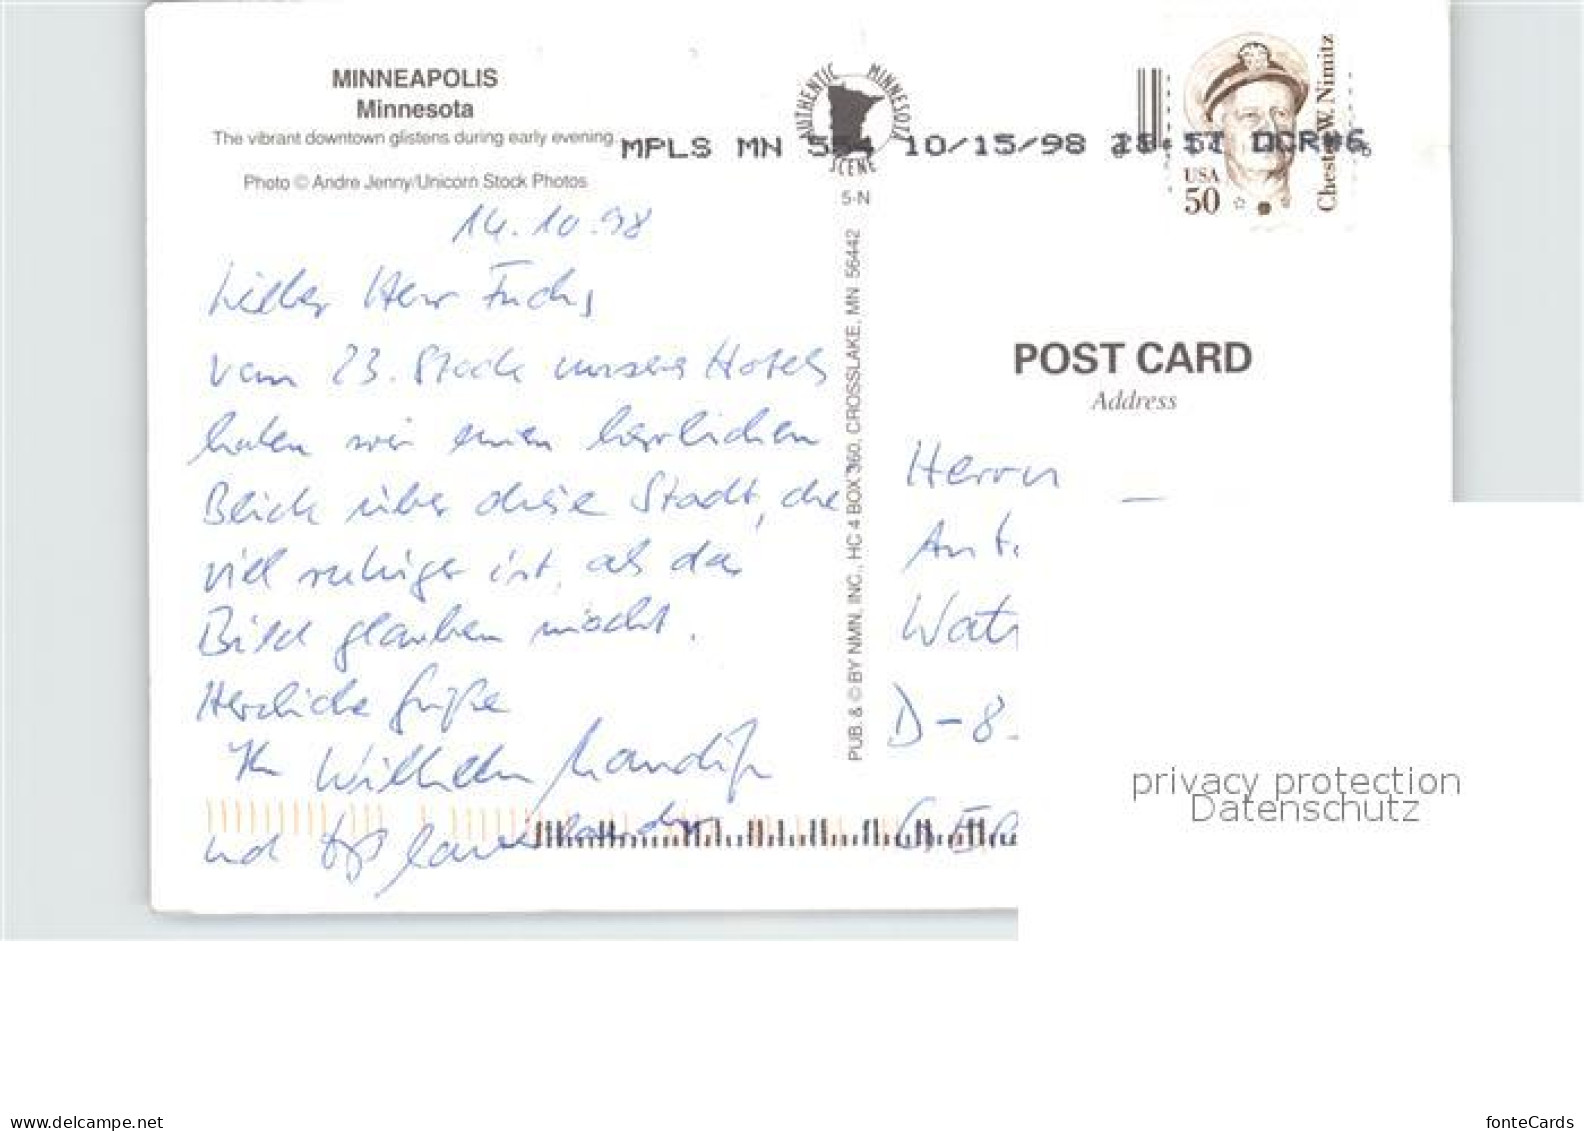 MINNEAPOLIS
Minnesota
The vibrant downtown glistens during early evening.
Photo © Andre Jenny/Unicorn Stock Photos
AUTHENTIC MINNESOTA SCENE
5-N
MPLS MN 554 10/15/98 OCR#6
Chester W. Nimitz
USA
50
14.10.98
Lieber Herr Fuchs
vom 23. Stock unseres Hotels
haben wir einen herrlichen
Blick über diese Stadt, die
viel ruhiger ist, als das
Bild glauben möcht.
Herzliche Grüße
Ihr Wilhelm
und
PUB. & © BY NMN, INC., HC 4 BOX 360, CROSSLAKE, MN 56442
POST CARD
Address
Herrn
Ant
Wat
D-8
GER
privacy protection
Datenschutz
www.delcampe.net
fonteCards